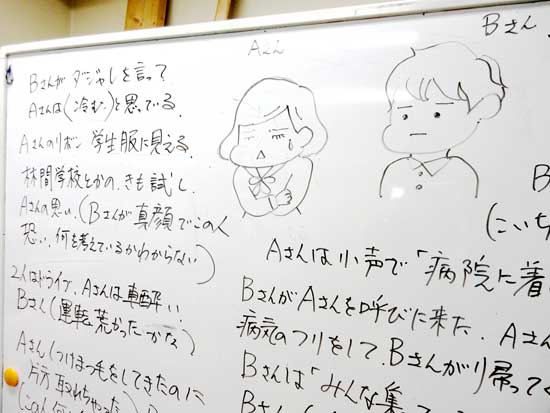 Aさん
Bさん
Bさんが ダジャレを言って
Aさんは(冷む。)と思っている.
Aさんのリボン 学生服に見える.
林間学校とかの、きも試し.
Aさんの思い.(Bさんが真顔でこの人
恐い、何を考えているかわからない)
2人はドライブ、Aさんは車酔い
Bさん(運転荒かったかな)
Aさん(つけまつ毛をしてきたのに
片方取れちゃった)
B
(こいち
Aさんは小声で「病院に着
BさんがAさんを呼びに来た. Aさん
病気のフリをして、Bさんが帰って
Bさんは「みんな集